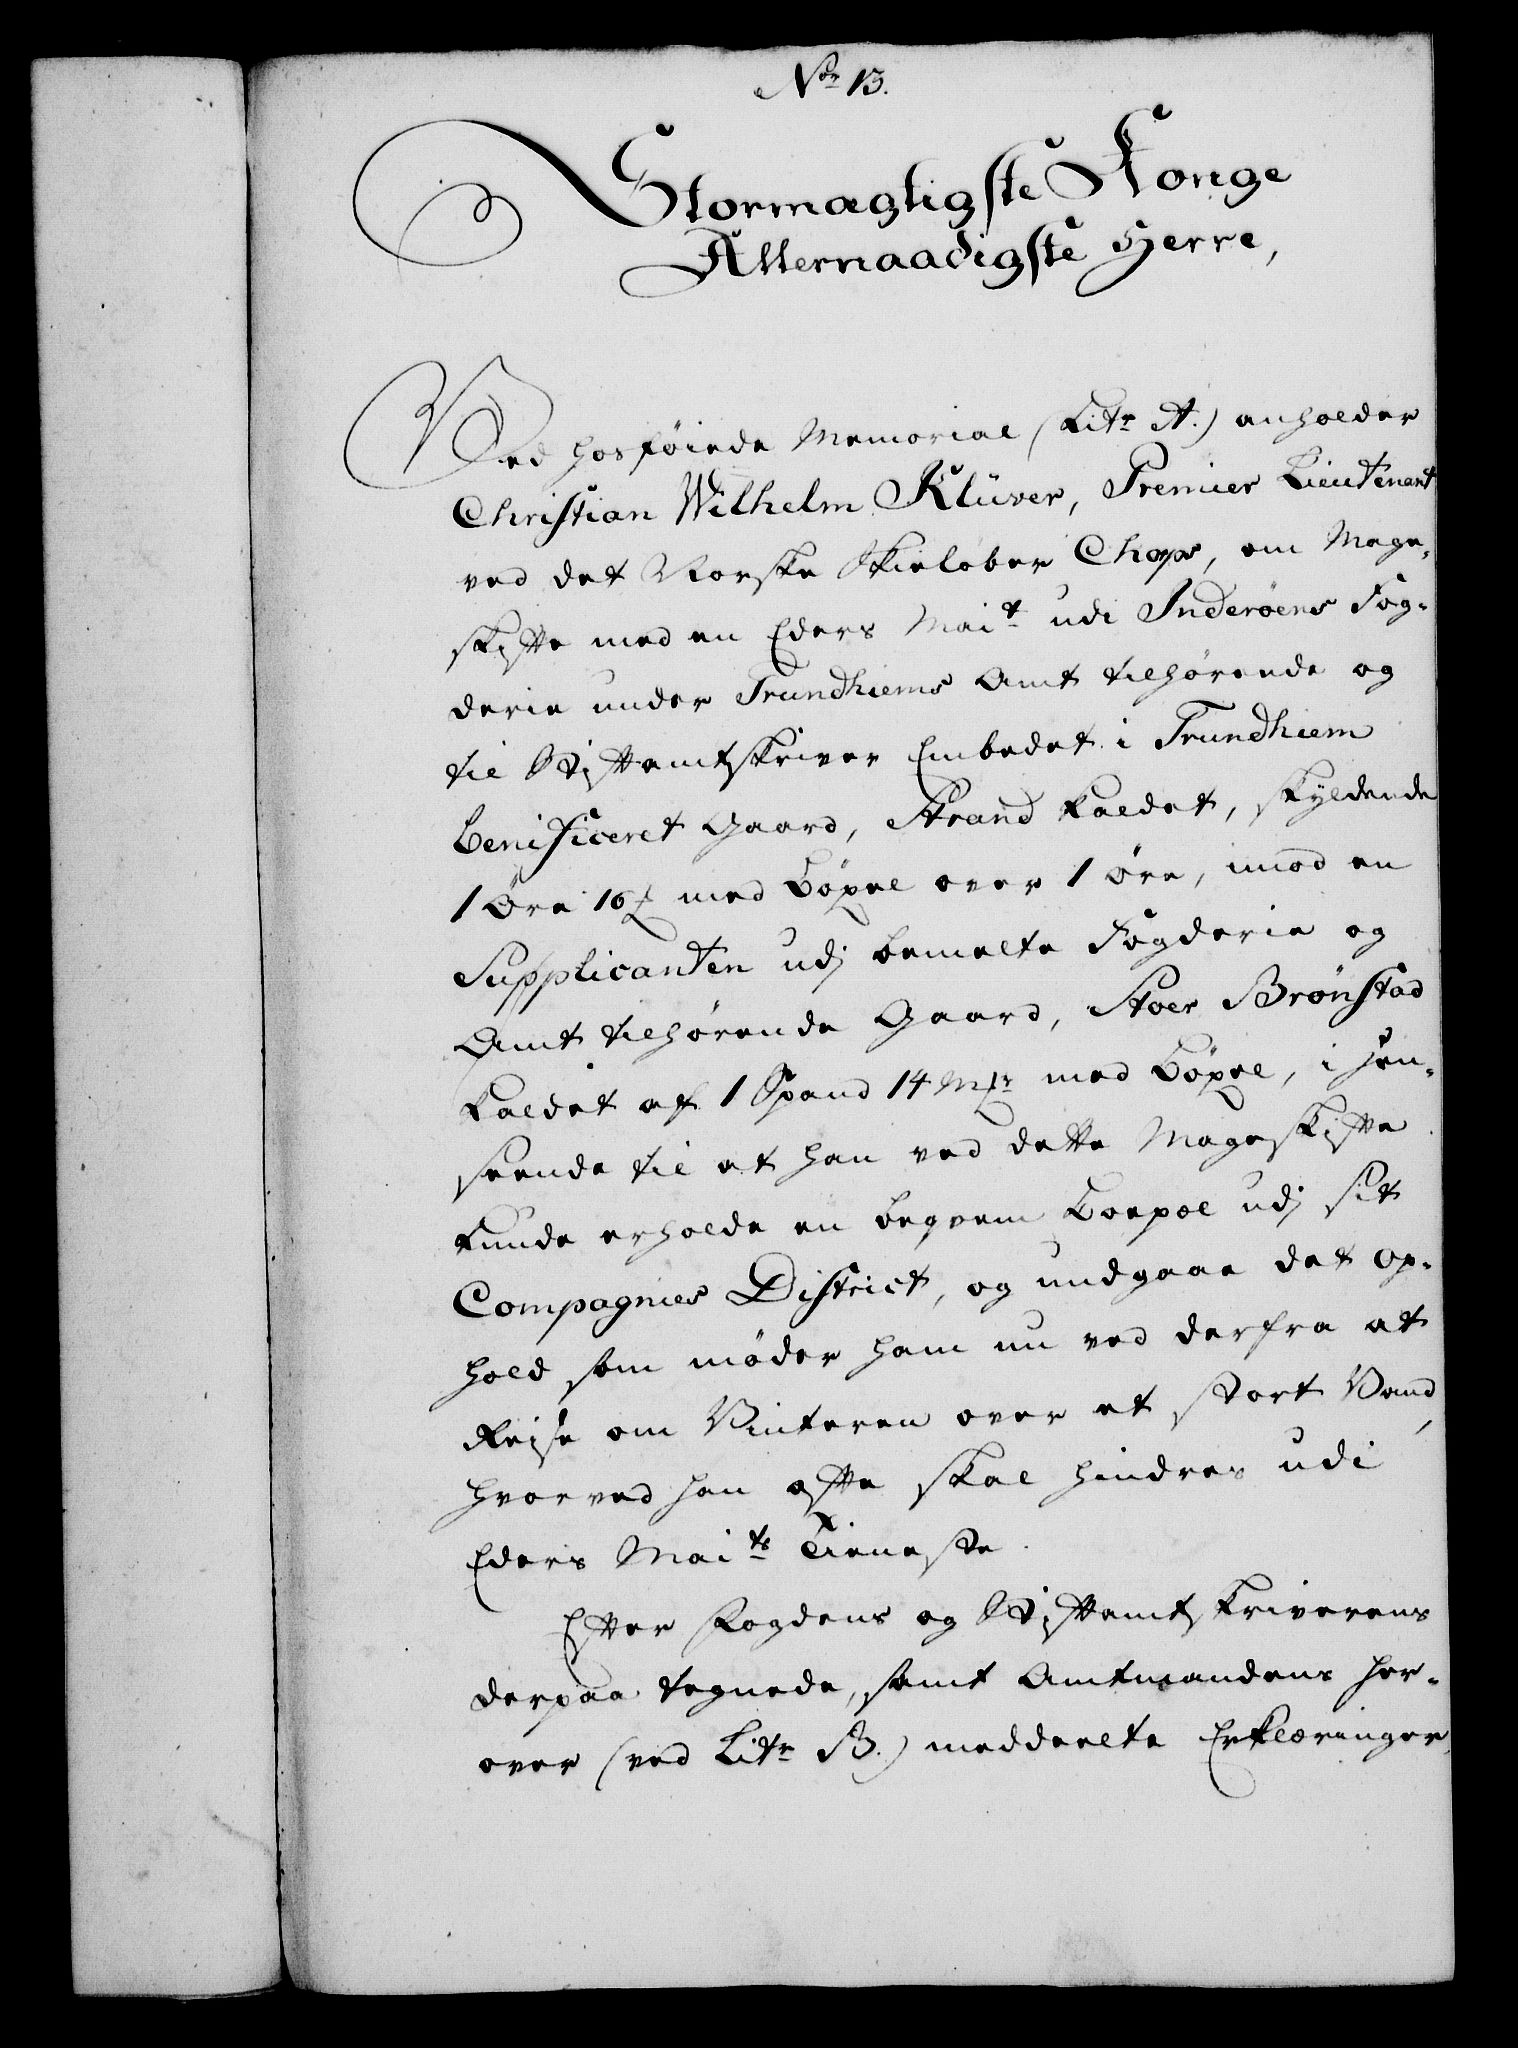 No 13.
Stormægtigste Konge
Allernaadigste Herre,
Ved hosføiede Memorial (Litr A.) anholder
Christian Wilhelm Klüver, Premier Lieutenant
ved det Norske Skieløber Chops, om Mage-
skifte med en Eders Mait udi Inderøens Fog-
derie under Trundhiems Amt tilhørende og
til Stiftamtskriver Embedet i Trundhiem
benificeret Gaard, Strand kaldet, skyldende
1 Øre 16 med Böxel over 1 Øre, imod en
Supplicanten udj bemelte Fogderie og
Amt tilhørende Gaard, Stoer Brønstad
kaldet af 1 Spand 14 Mkr med Böxel, i Hen-
seende til at han ved dette Mageskifte
kunde erholde en beqvem Boepæl udj sit
Compagnies District, og undgaae det Op-
hold som møder ham nu ved derfra at
Reise om Vinteren over et stort Vand,
hvorved han ofte skal hindres udi
Eders Maits Tieneste.
Efter Fogdens og Stiftamtskriverens
derpaa tegnede, samt Amtmandens her-
over (ved Litr B.) meddeelte Erklæringer,